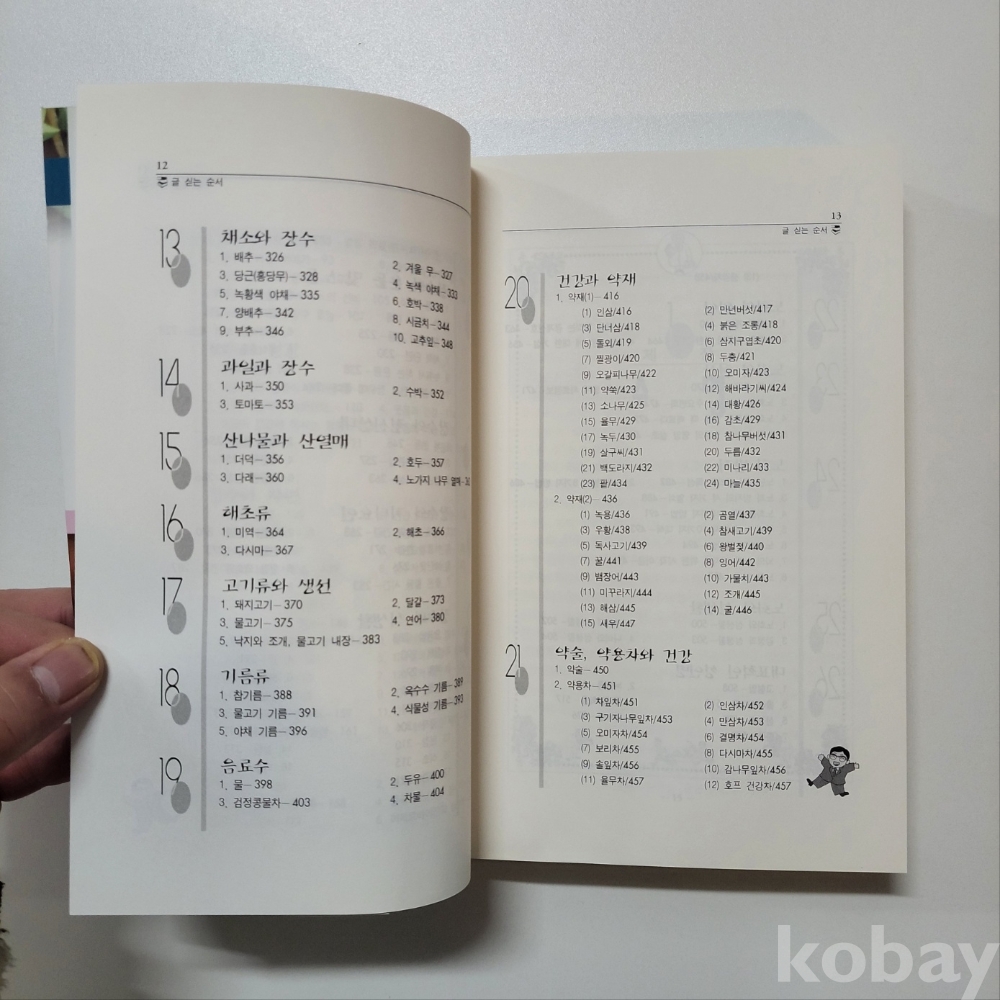 12
글 싣는 순서
13
채소와 장수
1. 배추－326
2. 겨울 무－327
3. 당근(홍당무)－328
4. 녹색 야채－333
5. 녹황색 야채－335
6. 호박－338
7. 양배추－342
8. 시금치－344
9. 부추－346
10. 고추잎－348
14
과일과 장수
1. 사과－350
2. 수박－352
3. 토마토－353
15
산나물과 산열매
1. 더덕－356
2. 호두－357
3. 다래－360
4. 노가지 나무 열매
16
해초류
1. 미역－364
2. 해초－366
3. 다시마－367
17
고기류와 생선
1. 돼지고기－370
2. 달걀－373
3. 물고기－375
4. 연어－380
5. 낙지와 조개, 물고기 내장－383
18
기름류
1. 참기름－388
2. 옥수수 기름－389
3. 물고기 기름－391
4. 식물성 기름－393
5. 야채 기름－396
19
음료수
1. 물－398
2. 두유－400
3. 검정콩물차－403
4. 차물－404
13
글 싣는 순서
20
건강과 약재
1. 약재(1)－416
(1) 인삼/416
(2) 만년버섯/417
(3) 단너삼/418
(4) 붉은 조롱/418
(5) 돌외/419
(6) 삼지구엽초/420
(7) 찔광이/420
(8) 두충/421
(9) 오갈피나무/422
(10) 오미자/423
(11) 약쑥/423
(12) 해바라기씨/424
(13) 소나무/425
(14) 대황/426
(15) 율무/429
(16) 감초/429
(17) 녹두/430
(18) 참나무버섯/431
(19) 살구씨/431
(20) 두릅/432
(21) 백도라지/432
(22) 미나리/433
(23) 팥/434
(24) 마늘/435
2. 약재(2)－436
(1) 녹용/436
(2) 곰열/437
(3) 우황/438
(4) 참새고기/439
(5) 독사고기/439
(6) 왕벌젖/440
(7) 꿀/441
(8) 잉어/442
(9) 뱀장어/443
(10) 가물치/443
(11) 미꾸라지/444
(12) 조개/445
(13) 해삼/445
(14) 굴/446
(15) 새우/447
21
약술, 약용차와 건강
1. 약술－450
2. 약용차－451
(1) 차잎차/451
(2) 인삼차/452
(3) 구기자나무잎차/453
(4) 만삼차/453
(5) 오미자차/454
(6) 결명차/454
(7) 보리차/455
(8) 다시마차/455
(9) 솔잎차/456
(10) 감나무잎차/456
(11) 율무차/457
(12) 호프 건강차/457
kobay